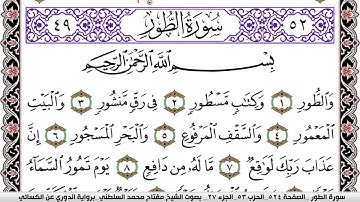 ٥٢ سُورَةُ الطُّورِ ٤٩
بِسْمِ اللَّهِ الرَّحْمَٰنِ الرَّحِيمِ
وَالطُّورِ ١ وَكِتَابٍ مَسْطُورٍ ٢ فِي رَقٍّ مَنْشُورٍ ٣ وَالْبَيْتِ
الْمَعْمُورِ ٤ وَالسَّقْفِ الْمَرْفُوعِ ٥ وَالْبَحْرِ الْمَسْجُورِ ٦ إِنَّ
عَذَابَ رَبِّكَ لَوَاقِعٌ ٧ مَا لَهُ مِنْ دَافِعٍ ٨ يَوْمَ تَمُورُ السَّمَاءُ
سورة الطور . الصفحة ٥٢٤ . الحزب ٥٣ . الجزء ٢٧ . بصوت الشيخ مفتاح محمد السلطني . برواية الدوري عن الكسائي